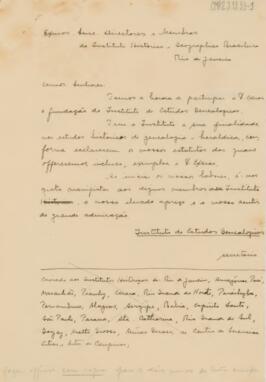 Exmos Snrs. Directores e Membros
do Instituto Historico e Geographico Brasileiro
Rio de Janeiro
Exmos Senhores:
Temos a honra de participar a V. Excias
a fundação do Instituto de Estudos Genealogicos.
Tem o Instituto a sua finalidade
nos estudos historicos de genealogia e heraldica, con-
forme esclarecem os nossos estatutos dos quaes
offerecemos exemplar a V. Excias.
Ao iniciar os nossos labores, é-nos
grato manifestar aos dignos membros desse Instituto
o nosso elevado apreço e a nossa
grande admiração.
Instituto de Estudos Genealogicos
secretario
aos Institutos Historicos do Rio de Janeiro, Amazonas, Pará,
Maranhão, Piauhy, Ceará, Rio Grande do Norte, Parahyba,
Pernambuco, Alagoas, Sergipe, Bahia, Espirito Santo,
São Paulo, Paraná, Sta. Catharina, Rio Grande do Sul,
Goyaz, Matto Grosso, Minas Geraes e Centro de Sciencias
Letras, Artes de Campinas.